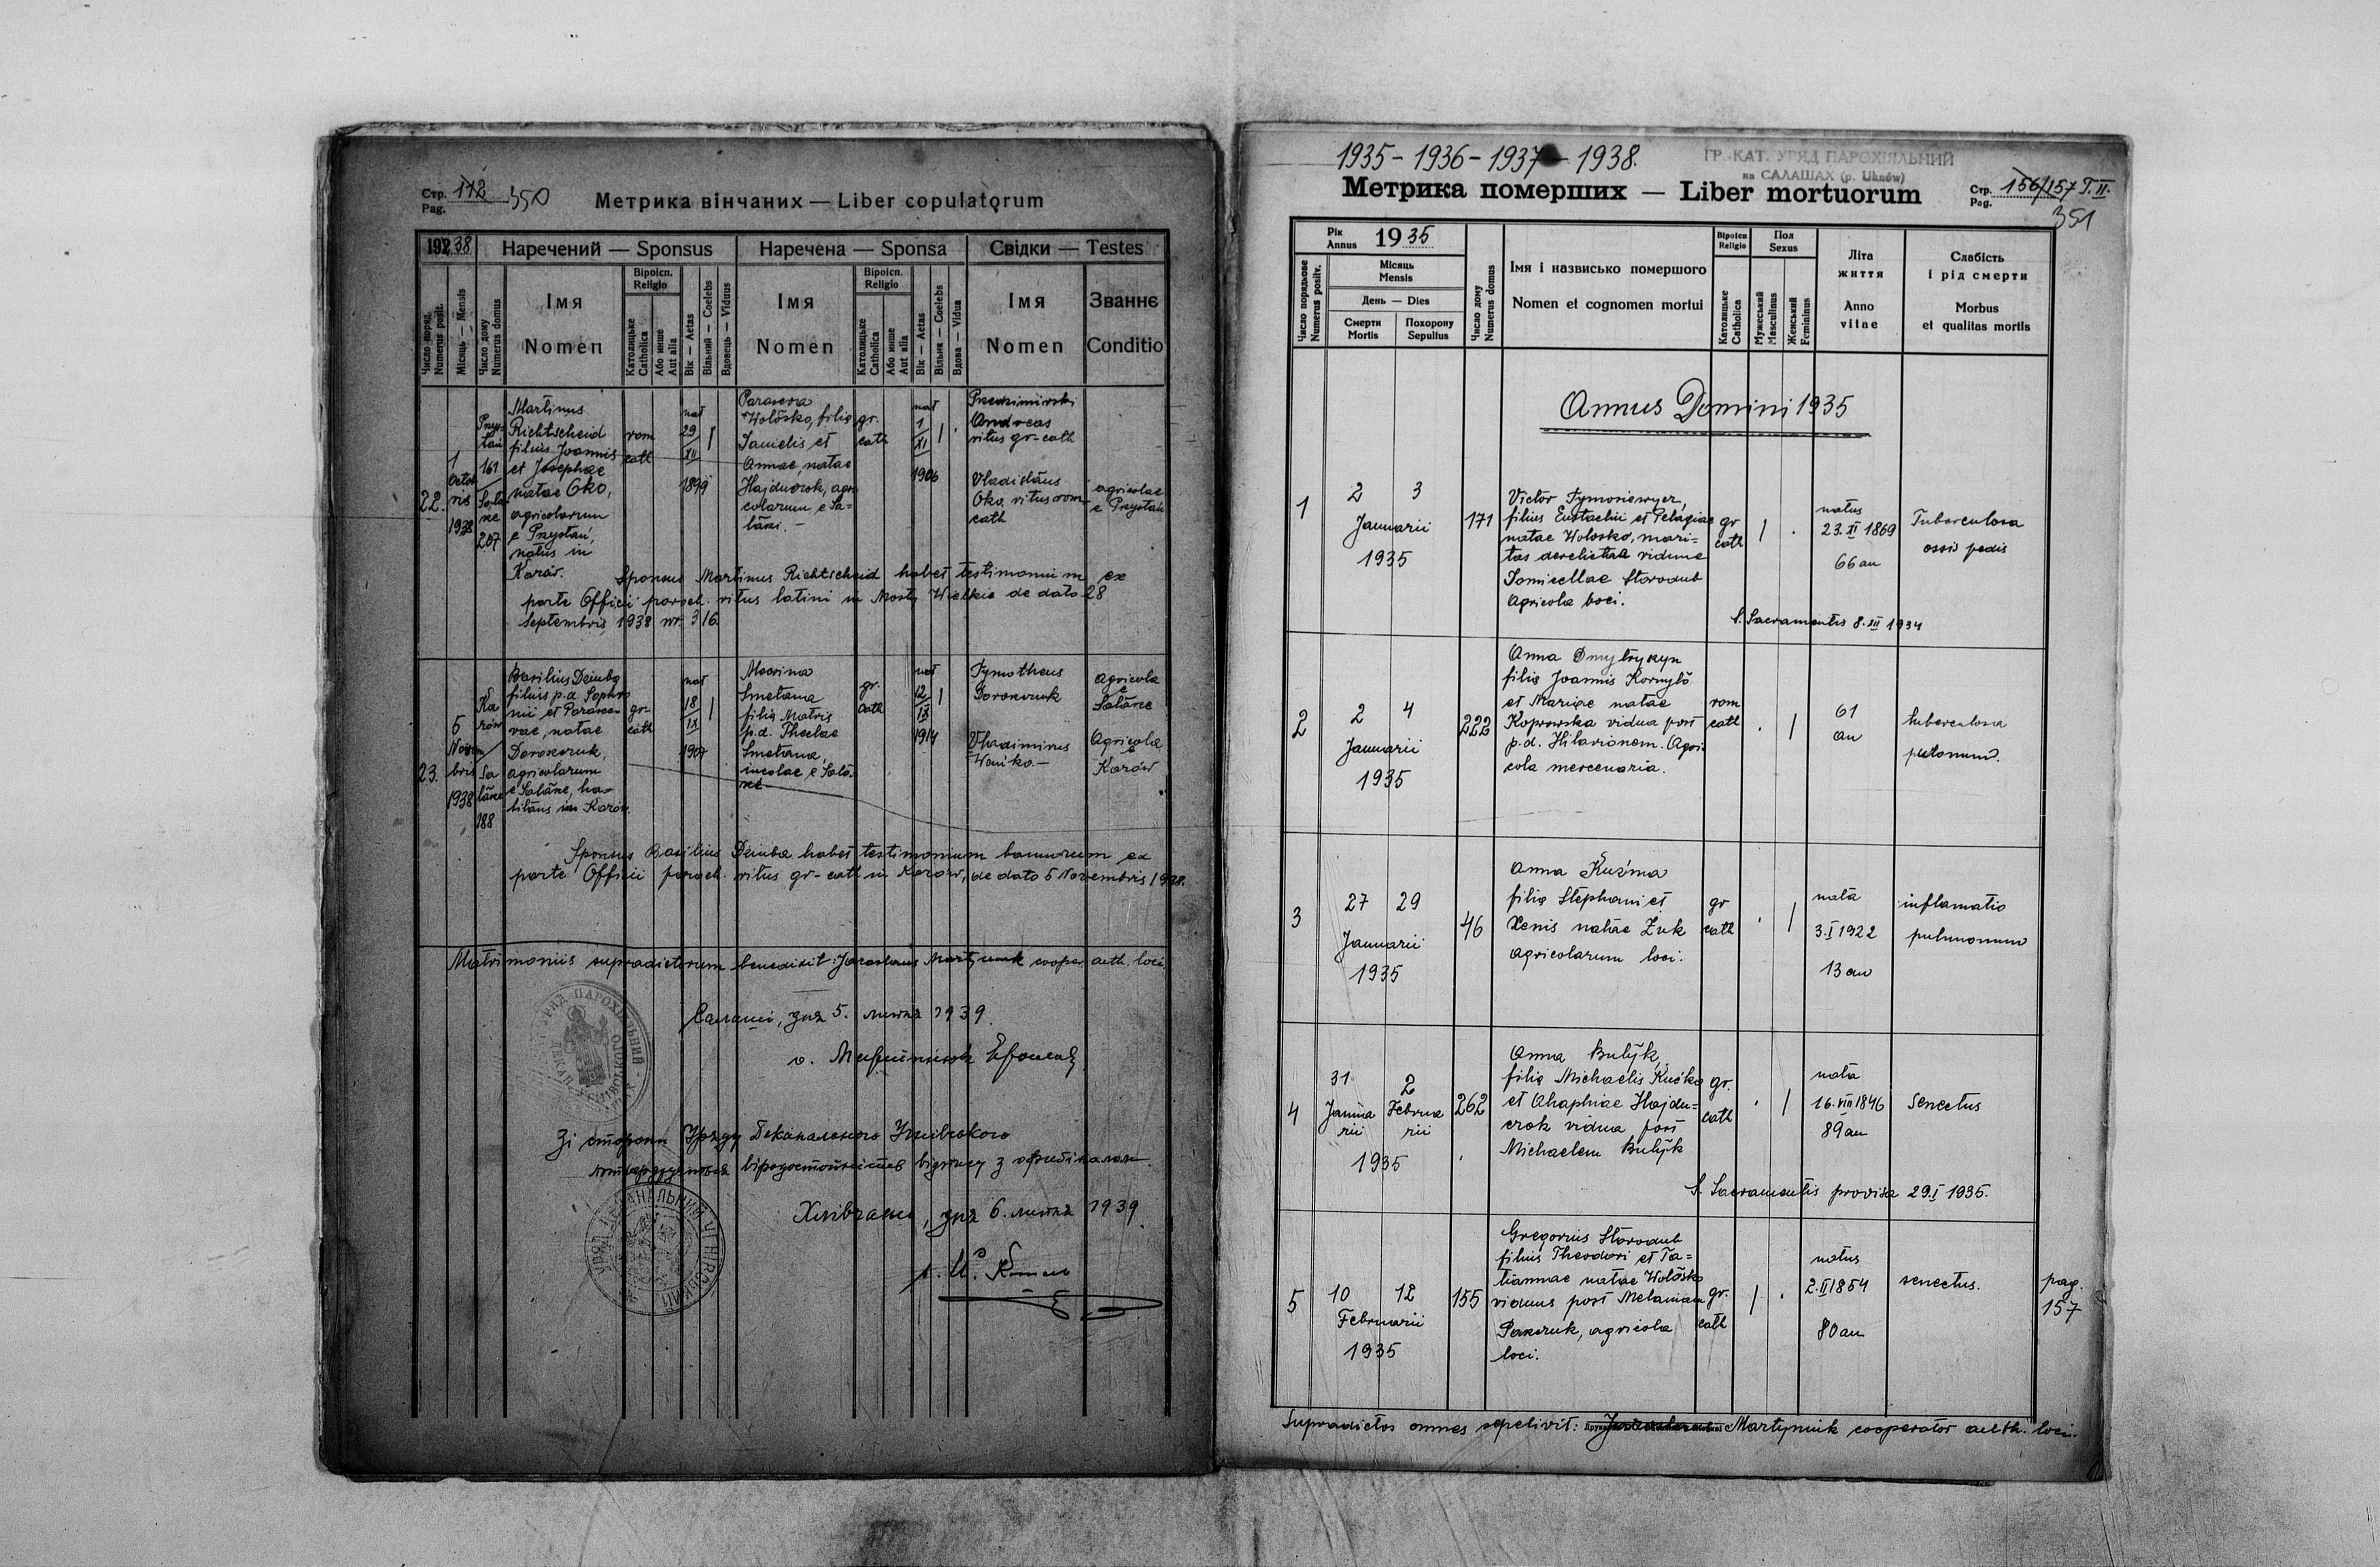 Стр. 112 350
Pag.
Метрика вінчаних — Liber copulatorum
1938
Наречений — Sponsus
Наречена — Sponsa
Свідки — Testes
Число поряд. Numerus posit.
Місяць — Mensis
Число дому Numerus domus
Імя
Nomen
Віроісп. Religio
Католицьке Catholica
Або инше Aut alia
Вік — Aetas
Вільний — Coelebs
Вдовець — Viduus
Імя
Nomen
Віроісп. Religio
Католицьке Catholica
Або инше Aut alia
Вік — Aetas
Вільна — Coelebs
Вдова — Vidua
Імя
Nomen
Званнє
Conditio
22.
1
Octob
ris
1938
Przys-
tań
161
Sala-
ne
207
Martinus
Richtscheid
filius Joannis
et Josephae
natae Oko,
agricolarum
e Przystań,
natus in
Karów.
rom
cath
nat
29
XII
1899
Parasceva
Wolosko, filia
Danielis et
Annae, natae
Hajduczok, agri
colarum e Sa-
lasze. -
gr.
cath
nat
1
XI
1906
Andreas
ritus gr-cath
Vladislaus
Oko, ritus rom-
cath
agricolae
e Przystań
Sponsus Martinus Richtscheid habet testimonium ex
parte Officii paroch. ritus latini in Mosty Wielkie de dato 28
Septembris 1938 nr. 316.
23.
5
Novem
bris
1938
Ka
rów
Sa
lasze
188
Basilius Dziuba
filius p.d. Sophro
nii et Parasce-
vae, natae
Doroszczuk,
agricolarum
e Salasze, ha-
bitans in Karów.
gr-
cath
nat
18
IX
1907
Marina
Smetana
filia Matris
p.d. Theclae
Smetana,
incolae e Sala-
sze
gr.
cath
nat
12
IX
1914
Tymotheus
Doroszczuk
Vladimirus
Wańko. —
agricola
e
Salasze
Agricola
e
Karów
Sponsus Basilius Dziuba habet testimonium bannorum ex
parte Officii paroch. ritus gr-cath in Karów, de dato 5 Novembris 1938.
Matrimoniis supradictorum benedixit: Jaroslaus Martyniuk cooper. aeth. loci.
Салаші, дня 5. липня 1939.
о. Мартинюк Ярослав
Зі сторони Уряду Деканального Угнівського
потверджується вірodостойність відпису з оригіналом.
Хлівчани, дня 6. липня 1939.
УРЯД ДЕКАНАЛЬНИЙ УГНІВСЬКИЙ
1935 - 1936 - 1937 - 1938.
ГР.-КАТ. УРЯД ПАРОХІЯЛЬНИЙ
на САЛАШАХ (p. Uhnów)
Метрика померших — Liber mortuorum
Стр. 156/157 T. II.
Pag.
351
Число порядкове Numerus positv.
Рік
Annus
1935
Місяць
Mensis
День — Dies
Смерти
Mortis
Похорону
Sepultus
Число дому Numerus domus
Імя і назвисько помершого
Nomen et cognomen mortui
Віроісп
Religio
Католицьке Catholica
Пол
Sexus
Мужеський Masculinus
Женський Femininus
Літа
життя
Anno
vitae
Слабість
і рід смерти
Morbus
et qualitas mortis
Annus Domini 1935
1
2 3
Januarii
1935
171
Victor Tymoniewycz,
filius Eustachii et Pelagiae
natae Wolosko, mari-
tus derelictae viduae
Domicellae Starodub
Agricola loci.
gr
cath
natus
23. XI 1869
66 an
Tuberculosa
ossis pedis
S. Sacramentis 8. XII 1934
2
2 4
Januarii
1935
222
Anna Dmytryszyn
filia Joannis Kornylo
et Mariae natae
Koprowska vidua post
p.d. Hilarionem. Agri-
cola mercenaria.
rom
cath
61
an
tuberculosa
pulmonum.
3
27 29
Januarii
1935
46
Anna Kuźma
filia Stephani et
Xenis natae Żuk
agricolarum loci.
gr
cath
nata
3. I 1922
13 an
inflamatio
pulmonum
4
31 2
Janua Februa
rii rii
1935
262
Anna Bulyk,
filia Michaelis Kućka
et Ahaphiae Hajdu-
czok vidua post
Michaelem Bulyk
gr.
cath
nata
16. VIII 1846
89 an
Senectus
S. Sacramentis provisa 29. I 1935.
5
10 12
Februarii
1935
155
Gregorius Starodub
filius Theodori et Ta-
tiannae natae Wolosko
viduus post Melaniam
Panczuk, agricola
loci.
gr.
cath
natus
2. II 1854
80 an
senectus.
pag.
157
Supradictos omnes sepelivit: Martyniuk cooperator aeth. loci.